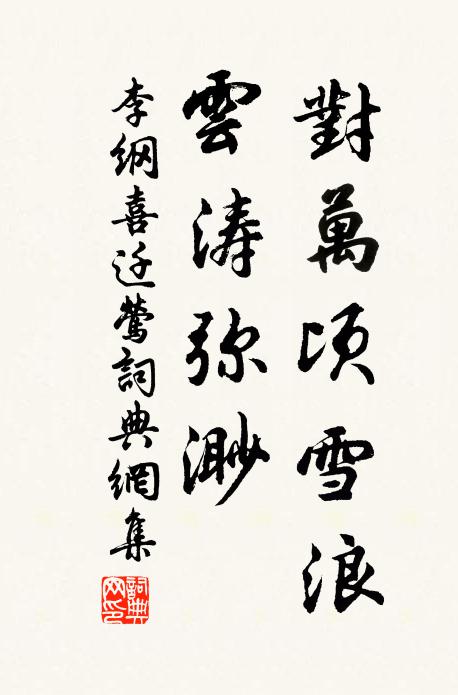 對萬頃雪浪
雲涛弥渺
李綱喜迁鶯詞典網集
詞典网印